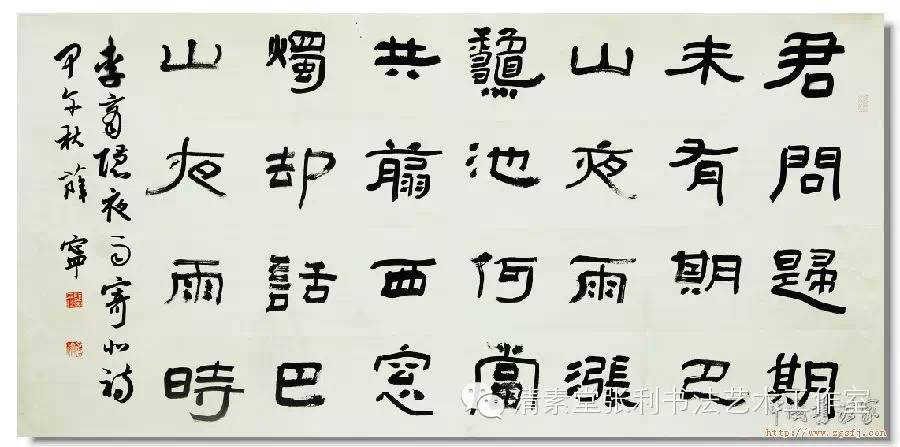 君問歸期
未有期巴
山夜雨漲
龝池何當
共翦西窓
燭却話巴
山夜雨時
李商隱夜雨寄北詩
甲午秋薛寧
清素堂张利书法艺术工作室
http://www.zgsfj.com